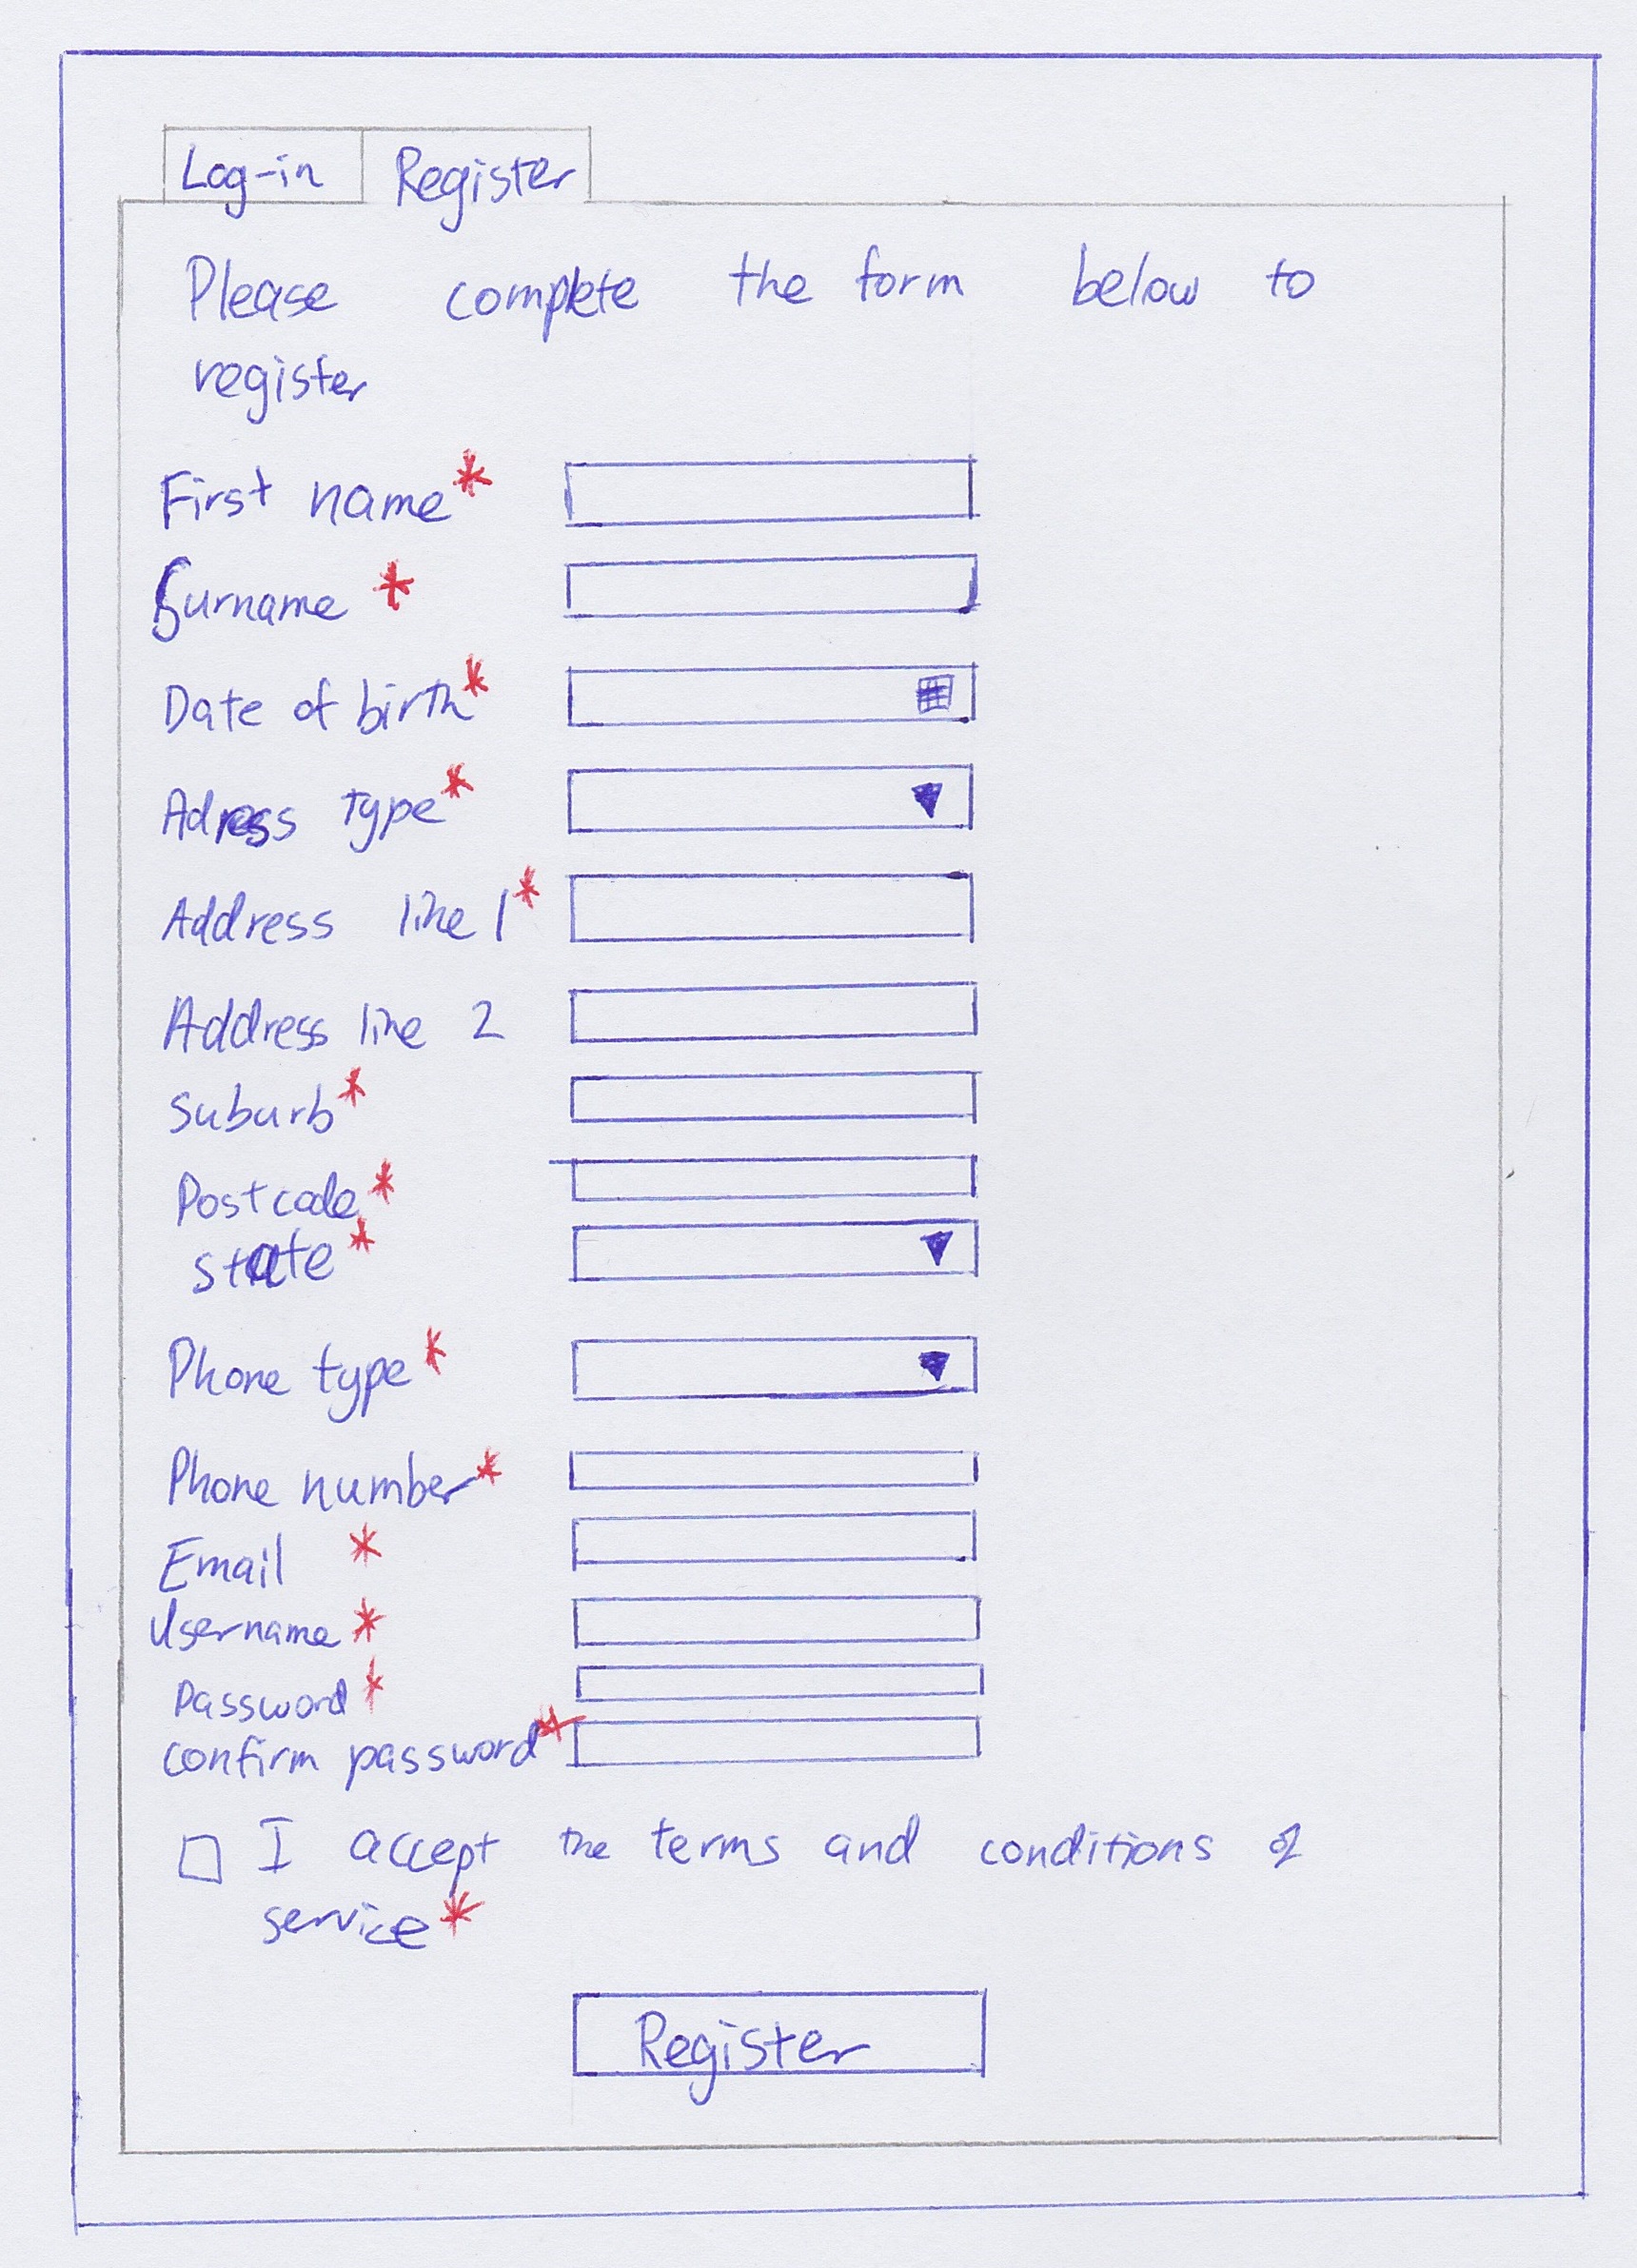 Log-in Register
Please complete the form below to
register
First name*
Surname *
Date of birth*
Adress type*
Address line 1*
Address line 2
Suburb*
Postcode*
state*
Phone type*
Phone number*
Email *
Username *
Password*
Confirm password*
I accept the terms and conditions of
service*
Register